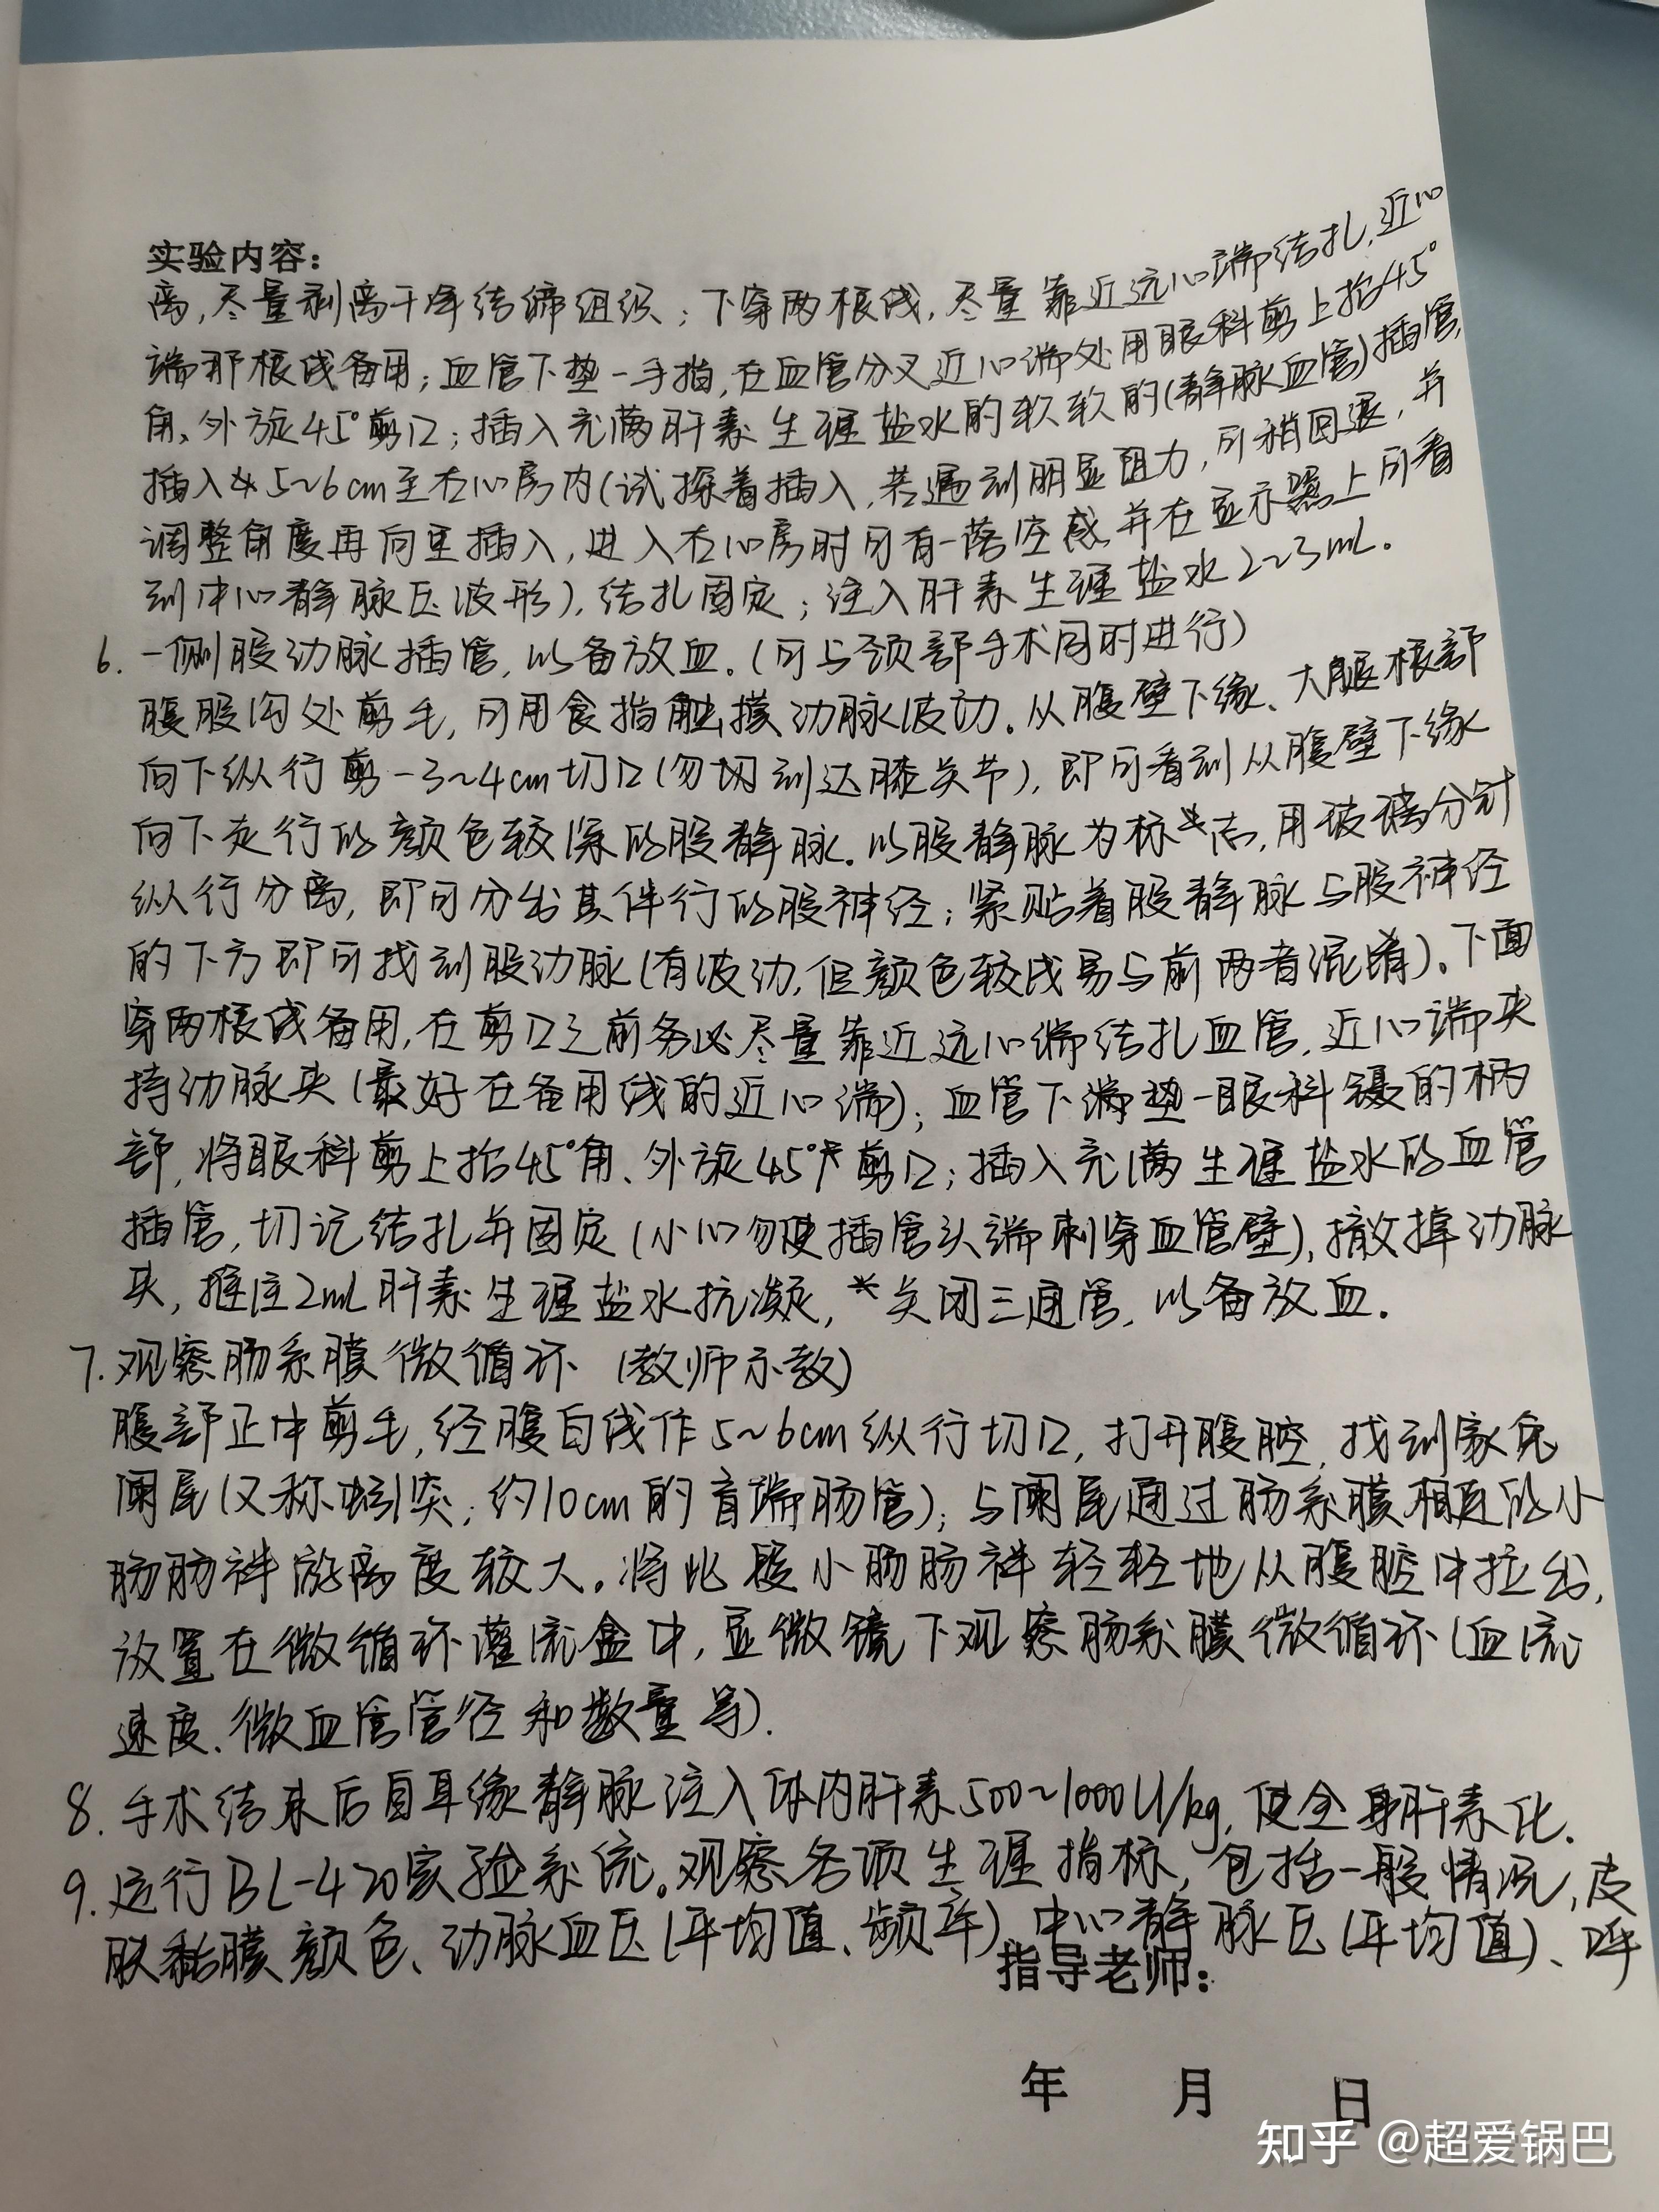 实验内容：
离，尽量剥离干净结缔组织；下穿两根线，尽量靠近远心端结扎，近心
端那根线备用；血管下垫一手指，在血管分叉近心端处用眼科剪上抬45°
角、外旋45°剪口；插入充满肝素生理盐水的软软的(静脉血管)插管，
插入5~6cm至右心房内(试探着插入，若遇到明显阻力，可稍回退，并
调整角度再向里插入，进入右心房时可有一落空感，并在显示器上可看
到中心静脉压波形)，结扎固定；注入肝素生理盐水2~3mL.
6. 一侧股动脉插管，以备放血.(可与颈部手术同时进行)
腹股沟处剪毛，可用食指触摸动脉波动.从腹壁下缘、大腿根部
向下纵行剪一3~4cm切口(勿切到达膝关节)，即可看到从腹壁下缘
向下走行的颜色较深的股静脉.以股静脉为标志，用玻璃分针
纵行分离，即可分出其伴行的股神经；紧贴着股静脉与股神经
的下方即可找到股动脉(有波动，但颜色较浅易与前两者混淆)。下面
穿两根线备用，在剪口之前务必尽量靠近远心端结扎血管，近心端夹
持动脉夹(最好在备用线的近心端)；血管下端垫一眼科镊的柄
部，将眼科剪上抬45°角、外旋45°剪口；插入充满生理盐水的血管
插管，切记结扎并固定(小心勿使插管头端刺穿血管壁)，撤掉动脉
夹，推注2mL肝素生理盐水抗凝，*关闭三通管，以备放血.
7. 观察肠系膜微循环 (教师示教)
腹部正中剪毛，经腹白线作5~6cm纵行切口，打开腹腔，找到家兔
阑尾(又称蚓突；约10cm的盲端肠管)；与阑尾通过肠系膜相连的小
肠肠袢游离度较大。将此段小肠肠袢轻轻地从腹腔中拉出，
放置在微循环灌流盒中，显微镜下观察肠系膜微循环(血流
速度、微血管管径和数量等).
8. 手术结束后自耳缘静脉注入体内肝素500~1000U/kg，使全身肝素化.
9. 运行BL-420实验系统。观察各项生理指标，包括一般情况，皮
肤黏膜颜色、动脉血压(平均值、频率)、中心静脉压(平均值)、呼
指导老师：
年 月 日
知乎 @超爱锅巴